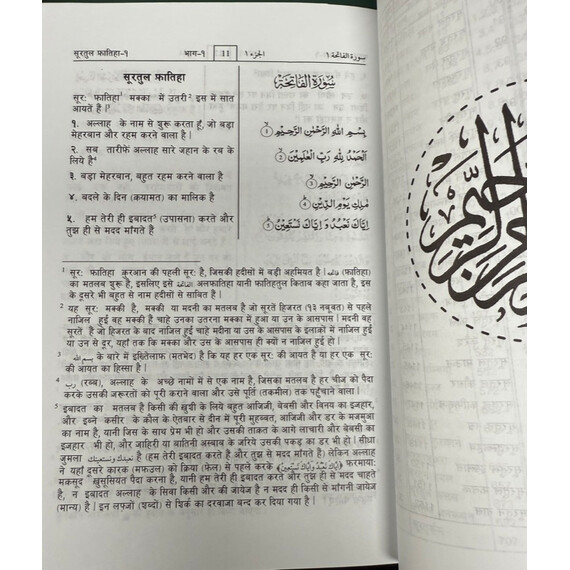 सूरतुल फ़ातिहा-१ भाग-१ 11 الجزء ١ سورة الفاتحة ١
सूरतुल फ़ातिहा
सूर: फ़ातिहा¹ मक्का में उतरी² इस में सात
आयतें हैं।
१. अल्लाह के नाम से शुरू करता हूँ, जो बड़ा
मेहरबान और रहम करने वाला है।
२. सब तारीफ़ें अल्लाह सारे जहान के रब के
लिये है⁴
३. बड़ा मेहरबान, बहुत रहम करने वाला है
४. बदले के दिन (क़यामत) का मालिक है
५. हम तेरी ही इबादत⁵ (उपासना) करते और
तुझ ही से मदद मांगते हैं
سُوْرَةُ الْفَاتِحَةِ
بِسْمِ اللّٰهِ الرَّحْمٰنِ الرَّحِيْمِ ①
اَلْحَمْدُ لِلّٰهِ رَبِّ الْعٰلَمِيْنَ ②
الرَّحْمٰنِ الرَّحِيْمِ ③
مٰلِكِ يَوْمِ الدِّيْنِ ④
اِيَّاكَ نَعْبُدُ وَ اِيَّاكَ نَسْتَعِيْنُ ⑤
¹ सूर: फ़ातिहा क़ुरआन की पहली सूर: है, जिसकी हदीसों में बड़ी अहमियत है। فاتحة (फ़ातिहा)
का मतलब शुरू है, इसलिए इसे الفاتحة अलफ़ातिहा यानी फ़ातिहतुल किताब कहा जाता है, इस
के दूसरे भी बहुत से नाम हदीसों से साबित हैं।
² यह सूर: मक्की है, मक्की या मदनी का मतलब है जो सूरतें हिजरत (१३ नबूवत) से पहले
नाज़िल हुई वह मक्की हैं चाहे उनका उतरना मक्का में हुआ या उन के आसपास। मदनी वह
सूरतें हैं जो हिजरत के बाद नाज़िल हुई चाहे मदीना या उस के आसपास के इलाक़ों में नाज़िल हुई
या उन से दूर, यहाँ तक कि मक्का और उस के आसपास ही क्यों न नाज़िल हुई हो।
³ بسم الله के बारे में इख़्तिलाफ़ (मतभेद) है कि यह हर एक सूर: की आयत है या हर एक सूर:
की आयत का हिस्सा है।
⁴ رب (रब्ब), अल्लाह के अच्छे नामों में से एक नाम है, जिसका मतलब है हर चीज़ को पैदा
करके उसकी ज़रूरतों को पूरी कराने वाला और उसे पूर्ति (तकमील) तक पहुँचाने वाला।
⁵ इबादत का मतलब है किसी की ख़ुशी के लिये बहुत आजिज़ी, बेबसी और विनय का इज़हार,
और इब्ने कसीर के क़ौल के ऐतबार से दीन में पूरी मुहब्बत, आजिज़ी और डर के मजमूआ
का नाम है, यानी जिस के साथ प्रेम भी हो और उसकी ताक़त के आगे लाचारी और बेबसी का
इज़हार भी हो, और ज़ाहिरी या बातिनी अस्बाब के ज़रिये उसकी पकड़ का डर भी हो। सीधा
जुमला نعبدك ونستعينك है (हम तेरी इबादत करते हैं और तुझ से मदद मांगते हैं) लेकिन अल्लाह ने
यहाँ दूसरे कारक (मफ़ऊल) को क्रिया (फ़ेल) से पहले करके ﴿اِيَّاكَ نَعْبُدُ وَاِيَّاكَ نَسْتَعِيْنُ﴾ फ़रमाया:
मक़सूद ख़ुसूसियत पैदा करना है, यानी हम तेरी ही इबादत करते और तुझ ही से मदद चाहते
हैं, न इबादत अल्लाह के सिवा किसी और की जायेज़ है न मदद ही किसी से माँगनी जायेज़
(मान्य) है। इन लफ़्ज़ों (शब्दों) से शिर्क का दरवाज़ा बन्द कर दिया गया है।